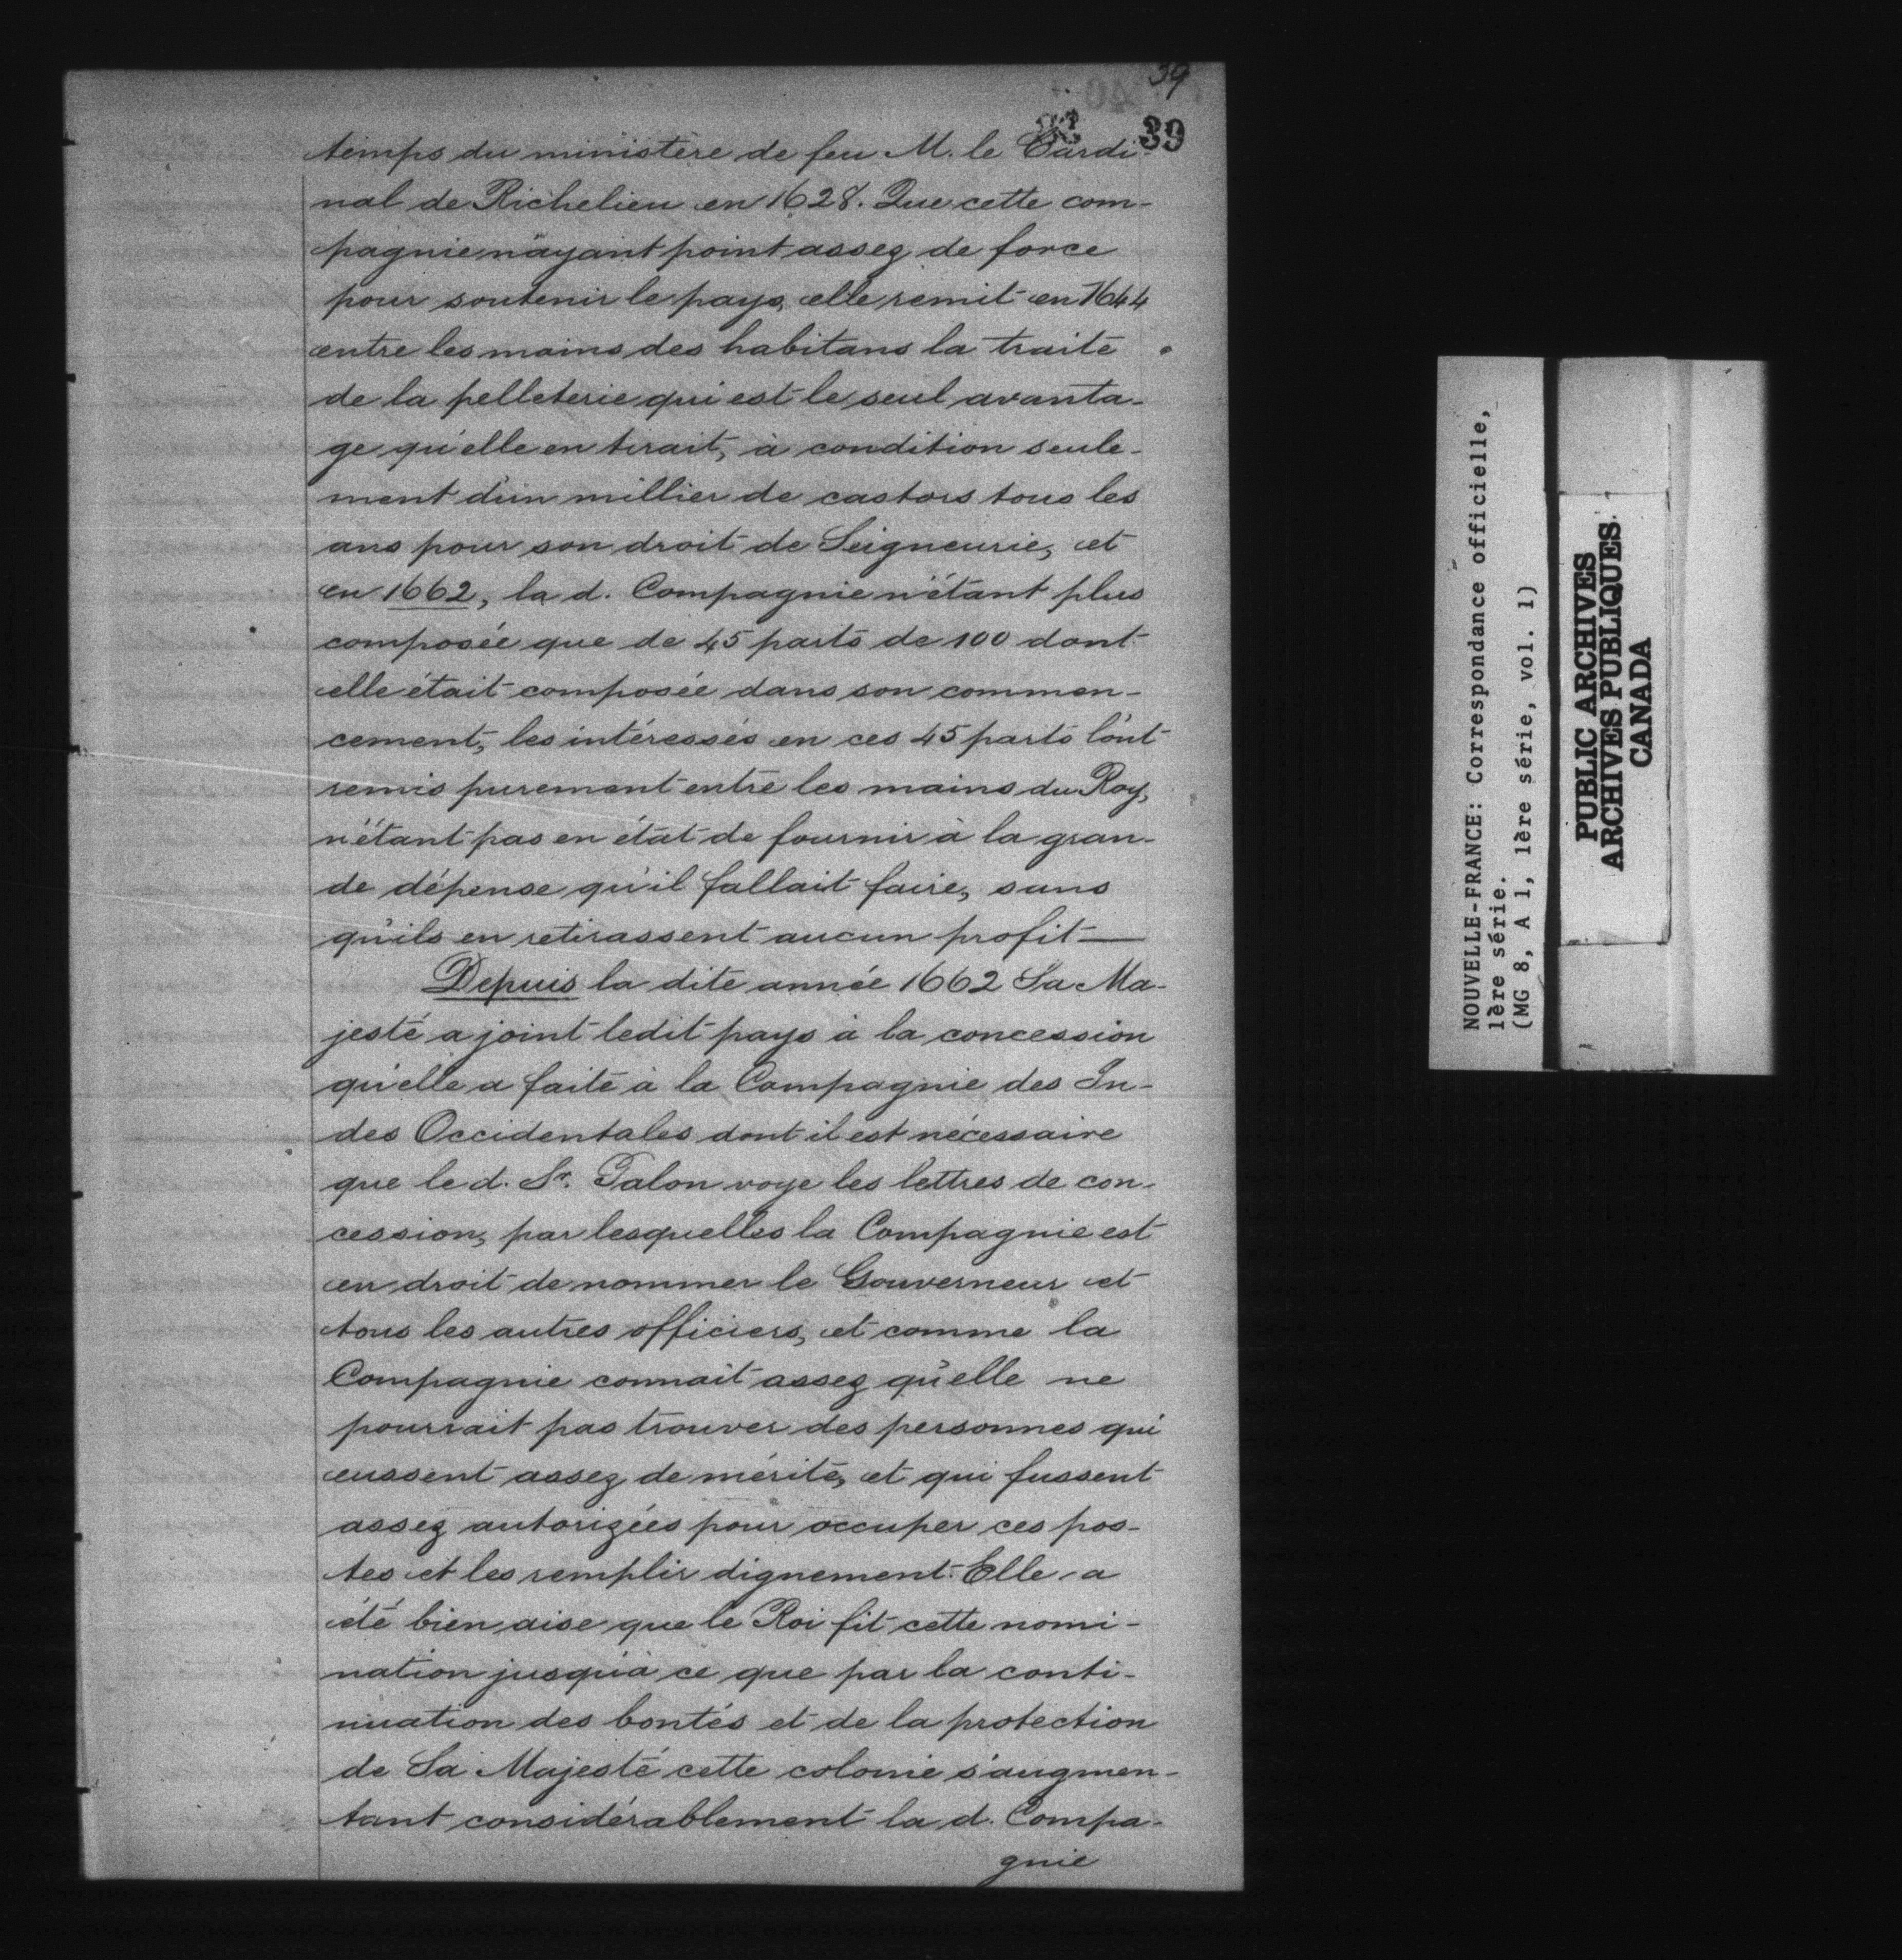 39
39
temps du ministère de feu M. le Cardi-
nal de Richelieu en 1628. Que cette com-
pagnie n'ayant point assez de force
pour soutenir le pays, elle remit en 1644
entre les mains des habitans la traite
de la pelleterie qui est le seul avanta-
ge qu'elle en tirait, à condition seule-
ment d'un millier de castors tous les
ans pour son droit de Seigneurie, et
en 1662, la d. Compagnie n'étant plus
composée que de 45 parts de 100 dont
elle était composée dans son commen-
cement, les intéressés en ces 45 parts l'ont
remis purement entre les mains du Roy,
n'étant pas en état de fournir à la gran-
de dépense qu'il fallait faire, sans
qu'ils en retirassent aucun profit—
Depuis la dite année 1662 Sa Ma-
jesté a joint ledit pays à la concession
qu'elle a faite à la Compagnie des In-
des Occidentales dont il est nécessaire
que le d. Sr. Talon voye les lettres de con-
cession, par lesquelles la Compagnie est
en droit de nommer le Gouverneur et
tous les autres officiers, et comme la
Compagnie connait assez qu'elle ne
pourrait pas trouver des personnes qui
eussent assez de mérite, et qui fussent
assez autorizées pour occuper ces pos-
tes et les remplir dignement. Elle a
été bien aise que le Roi fit cette nomi-
nation jusqu'à ce que par la conti-
nuation des bontés et de la protection
de Sa Majesté cette colonie s'augmen-
tant considérablement la d. Compa-
gnie
NOUVELLE-FRANCE: Correspondance officielle,
1ère série.
(MG 8, A 1, 1ère série, vol. 1)
PUBLIC ARCHIVES
ARCHIVES PUBLIQUES
CANADA